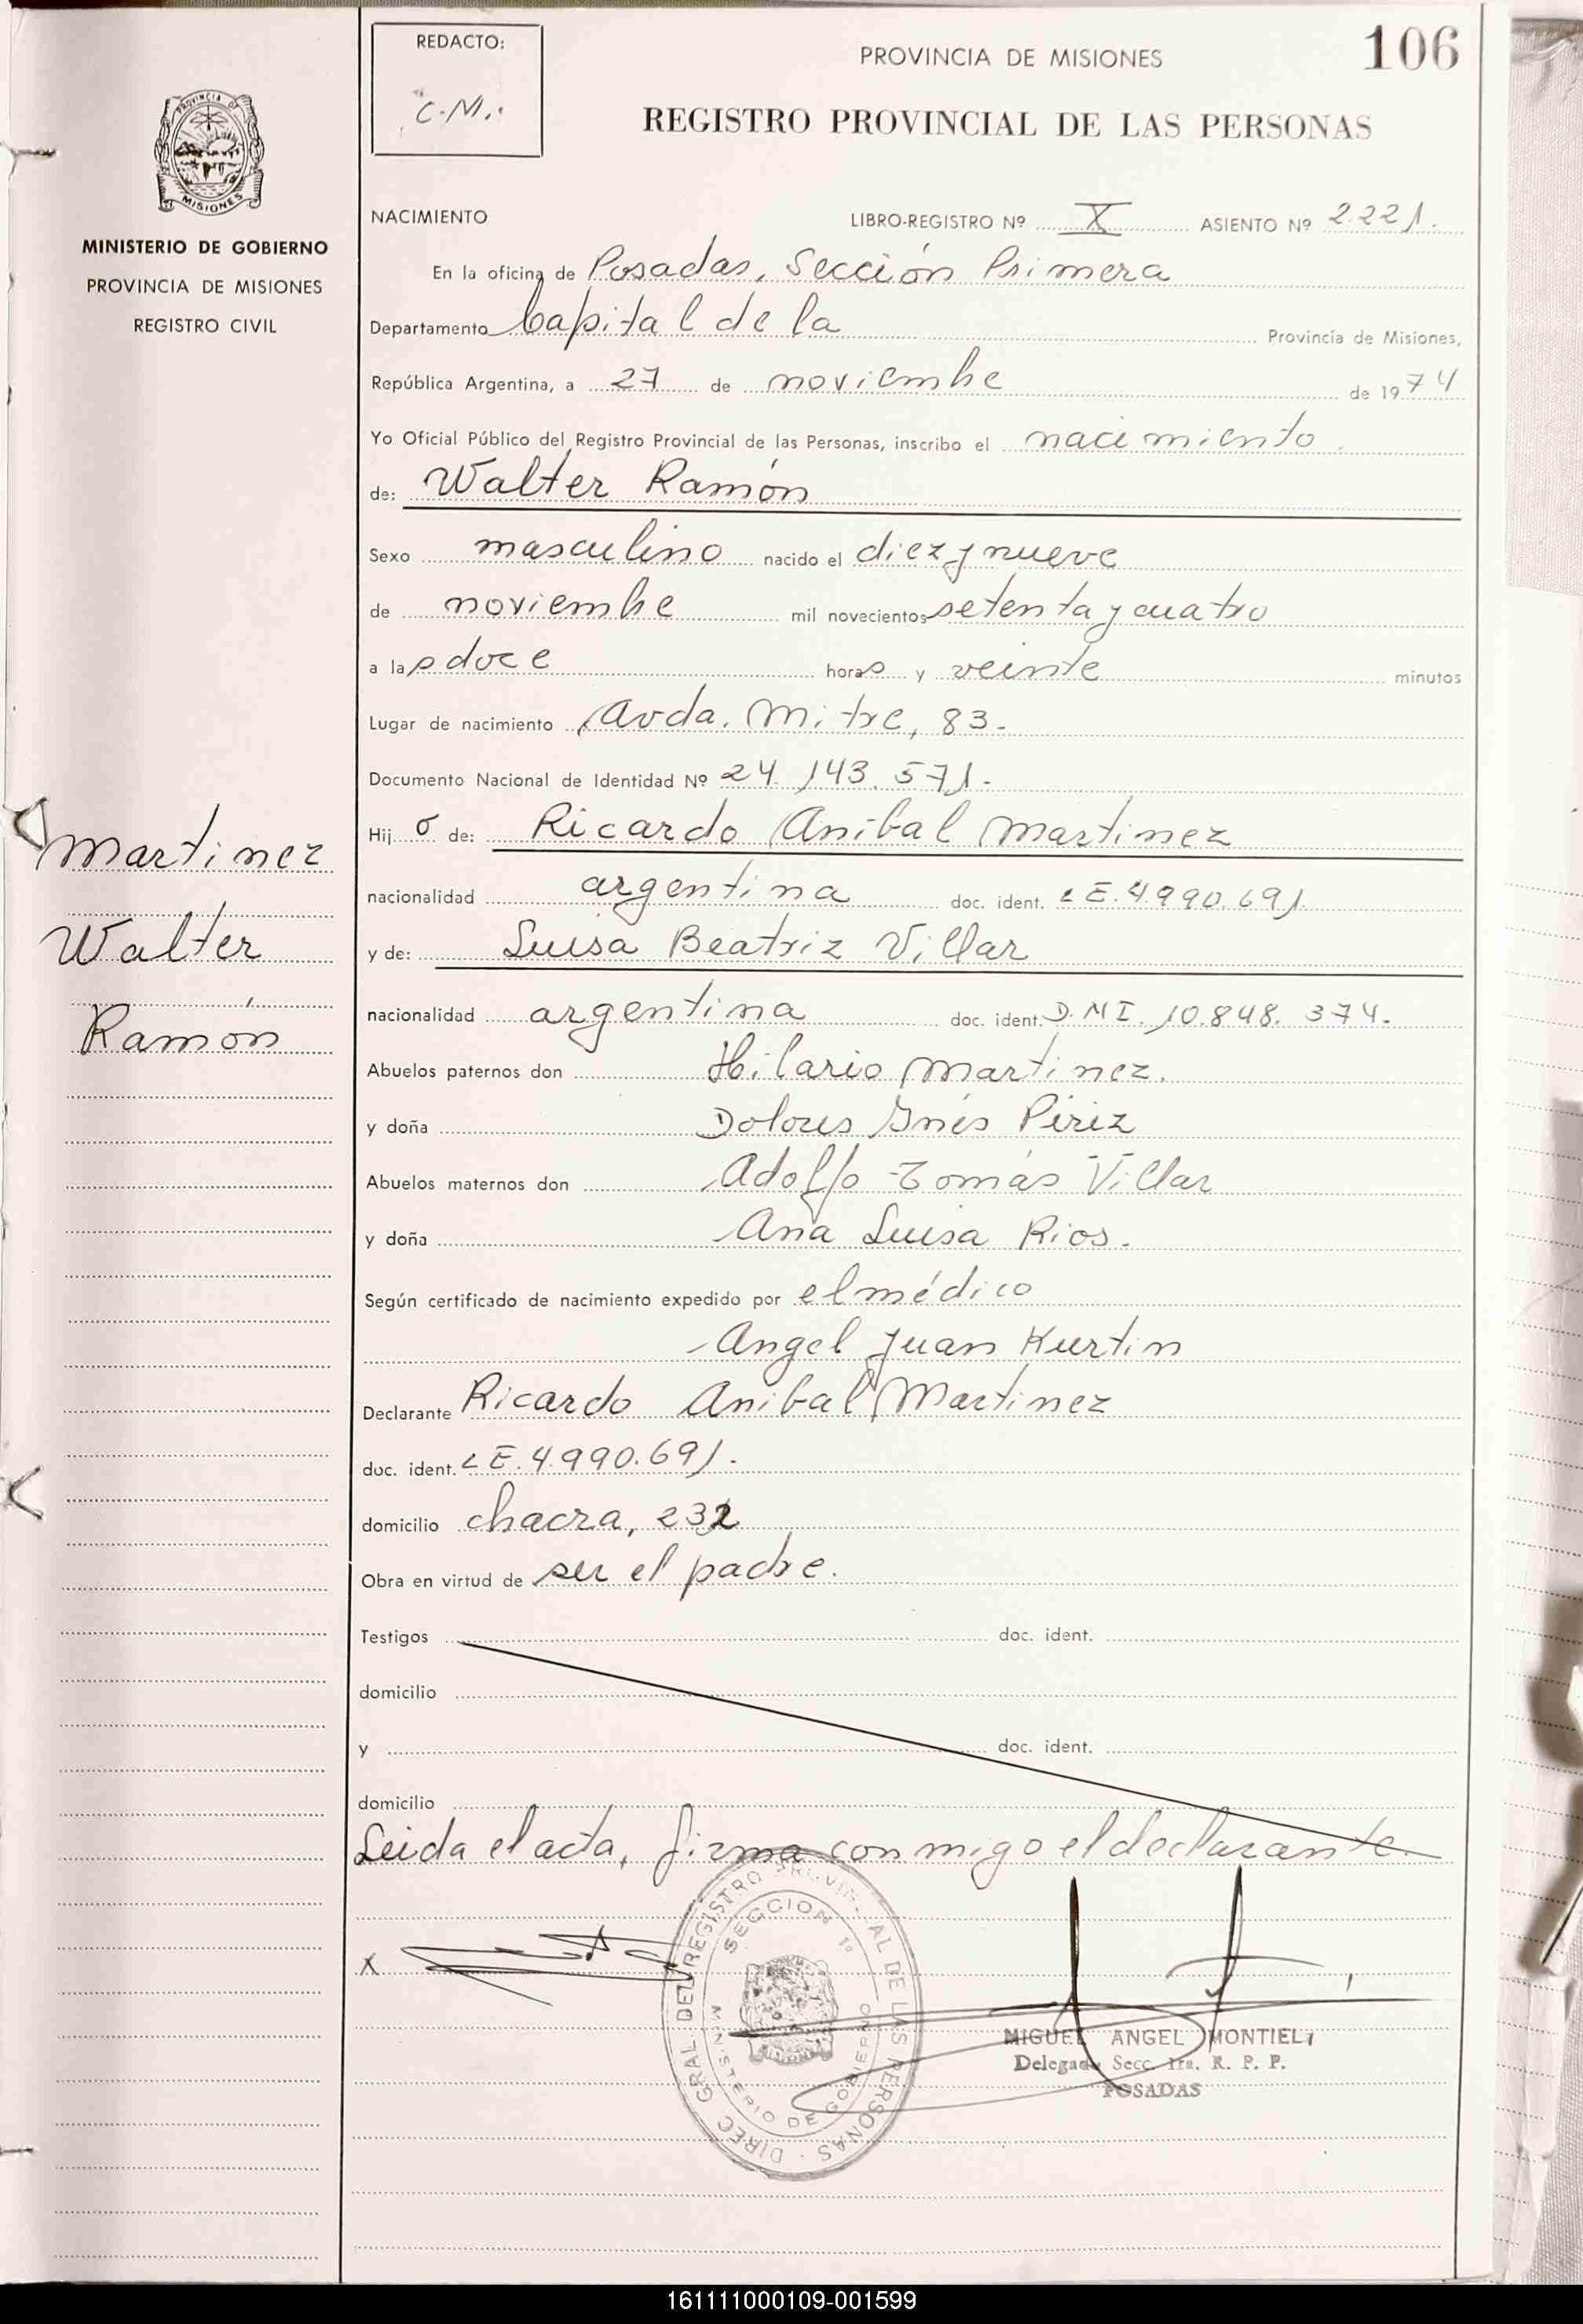 REDACTO:
C.M.
PROVINCIA DE MISIONES
106
REGISTRO PROVINCIAL DE LAS PERSONAS
PROVINCIA DE
MISIONES
MINISTERIO DE GOBIERNO
PROVINCIA DE MISIONES
REGISTRO CIVIL
NACIMIENTO LIBRO-REGISTRO Nº X ASIENTO Nº 2.221.
En la oficina de Posadas, Sección Primera
Departamento Capital de la Provincia de Misiones,
República Argentina, a 27 de noviembre de 1974
Yo Oficial Público del Registro Provincial de las Personas, inscribo el nacimiento
de: Walter Ramón
Sexo masculino nacido el diez y nueve
de noviembre mil novecientos setenta y cuatro
a las doce horas y veinte minutos
Lugar de nacimiento Avda. Mitre, 83.-
Documento Nacional de Identidad Nº 24.143.571.-
Hijo de: Ricardo Anibal Martinez
nacionalidad argentina doc. ident. L E. 4.990.691.
y de: Luisa Beatriz Villar
nacionalidad argentina doc. ident. D.N I. 10.848.374.-
Abuelos paternos don Hilario Martinez.
y doña Dolores Inés Píriz
Abuelos maternos don Adolfo Tomás Villar
y doña Ana Luisa Rios.-
Según certificado de nacimiento expedido por el médico
Angel Juan Kurtin
Declarante Ricardo Anibal Martinez
doc. ident. L E. 4.990.691.-
domicilio chacra, 232
Obra en virtud de ser el padre.
Testigos doc. ident.
domicilio
y doc. ident.
domicilio
Leida el acta, firma conmigo el declarante.
Martinez
Walter
Ramón
X
DIREC. GRAL. DEL REGISTRO PROVINCIAL DE LAS PERSONAS
SECCION 1ª
MINISTERIO DE GOBIERNO
MIGUEL ANGEL MONTIEL
Delegado Secc. 1ra. R. P. P.
POSADAS
161111000109-001599